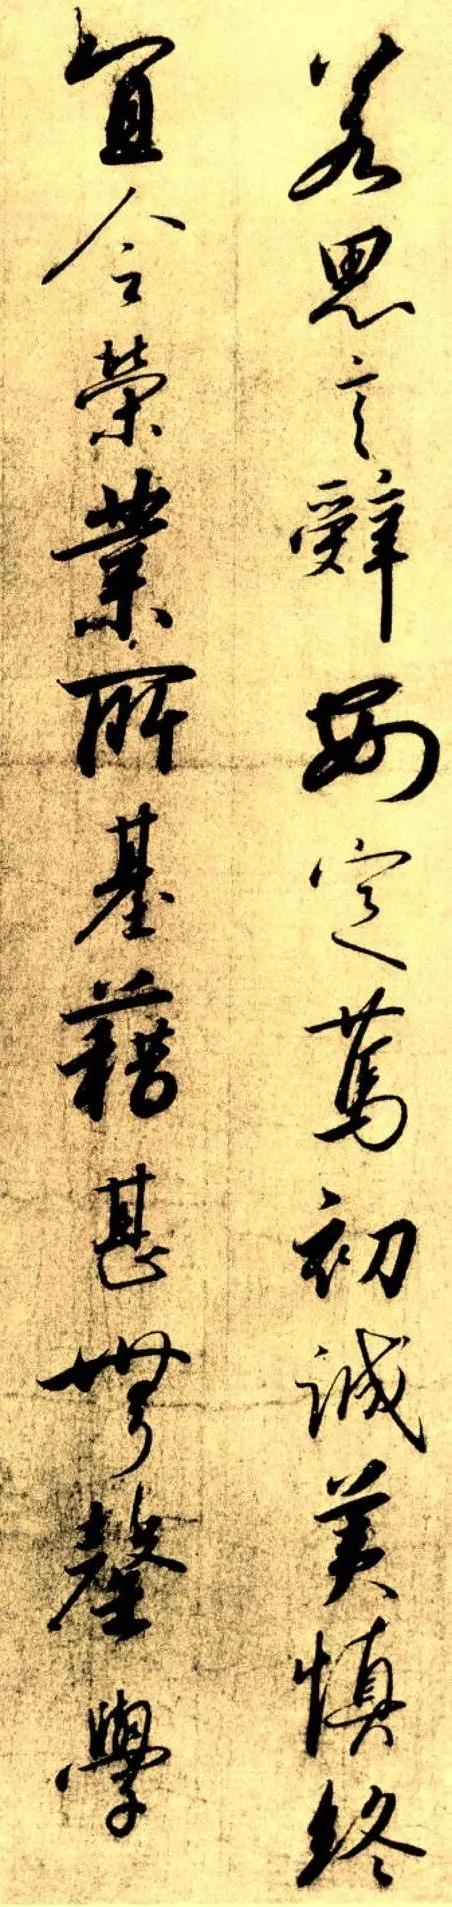 若思言辭安定篤初誠美慎終
宜令榮業所基藉甚無罄學